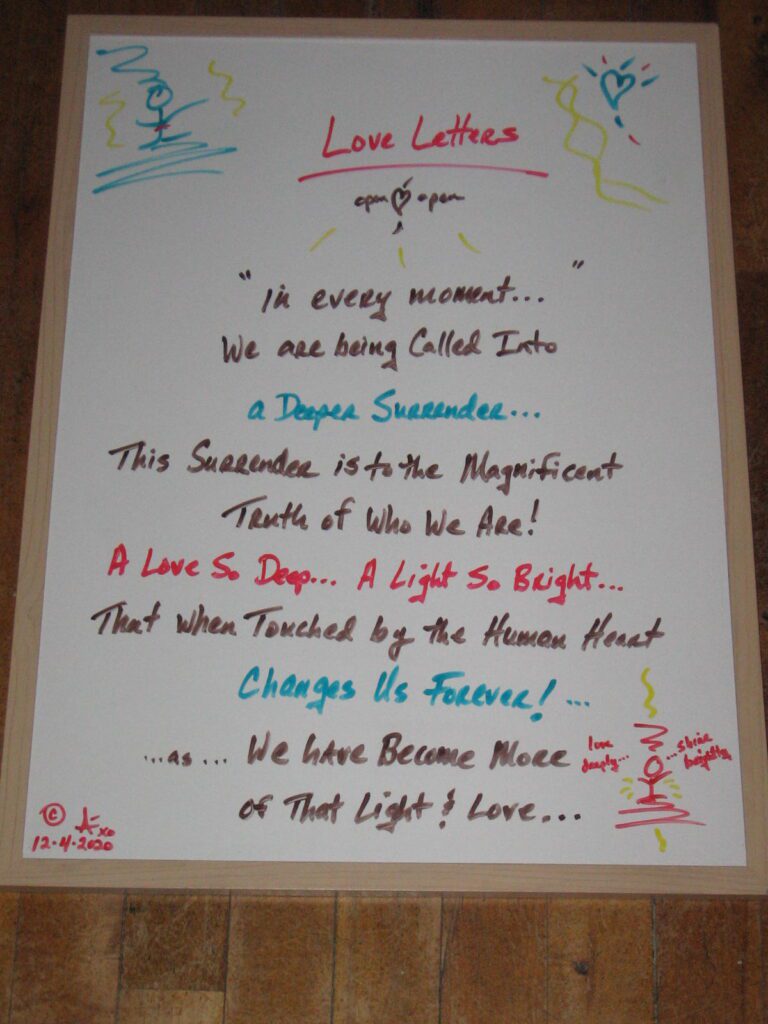 Love Letters
open open
"In every moment... "
We are being Called Into
a Deeper Surrender...
This Surrender is to the Magnificent
Truth of Who We Are!
A Love So Deep... A Light So Bright...
That when Touched by the Human Heart
Changes Us Forever! ...
...as... We have Become More
of That Light & Love...
love deeply...
...shine brightly
© A xo
12.4.2020